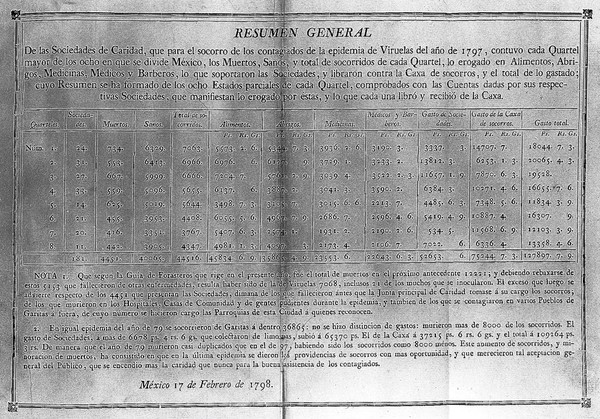 RESUMEN GENERAL
De las Sociedades de Caridad, que para el socorro de los contagiados de la epidemia de Viruelas del año de 1797, contuvo cada Quartel
mayor de los ocho en que se divide México, los Muertos, Sanos, y total de socorridos de cada Quartel, lo erogado en Alimentos, Abri-
gos, Medicinas, Médicos y Barberos, lo que soportaron las Sociedades, y libraron contra la Caxa de socorros, y el total de lo gastado;
cuyo Resumen se ha formado de los ocho Estados parciales de cada Quartel, comprobados con las Cuentas dadas por sus respec-
tivas Sociedades, que manifiestan lo erogado por estas, y lo que cada una libró y recibió de la Caxa.
Quarteles Socieda-des. Muertos. Sanos. Total de so-corridos. Alimentos. Abrigos. Medicinas. Médicos y Bar-beros. Gasto de Socie-dades. Gasto de la Caxa de socorros. Gasto total.
Núm. 1. 24. 734. 6329. 7063. 3936. 2. 6. 3190. 3. 3337. 3. 14707. 7. 18044. 7. 3.
2. 30. 553. 6412. 6966. 6976. 3729. 1. 3233. 2. 13812. 3. 6253. 1. 3. 20065. 4. 3.
3. 27. 667. 6666. 7204. 7. 3039. 4. 3522. 2. 3. 11657. 1. 9. 7870. 6. 3. 19528.
4. 33. 559. 5096. 5655. 9137. 3041. 3. 3590. 2. 6384. 3. 10271. 4. 6.
5. 14. 625. 5019. 5644. 3498. 7. 3. 3015. 6. 6. 2213. 7. 4485. 6. 3. 7348. 5. 6. 11834. 3. 9.
6. 21. 4408. 6055. 5. 6. 2686. 7. 2496. 4. 6. 5419. 4. 9. 10887. 4. 16307. 9.
7. 20. 416. 3767. 5407. 6. 3. 1931. 2. 2190. 6. 534. 5. 11568. 6. 9. 12103. 3. 9.
8. 11. 4347. 4981. 2173. 4. 2106. 7. 7022. 6. 6336. 4. 13358. 4. 6.
181. 4451. 40065. 44516. 45834. 6. 9. 22643. 6. 3. 52653. 6. 75244. 7. 3. 127897. 7. 9.
NOTA 1. Que segun la Guia de Forasteros que rige en el presente año, fué el total de muertos en el próximo antecedente 12221; y debiendo rebaxarse de
estos 5153 que fallecieron de otras enfermedades, resulta haber sido de Viruelas 7068, inclusos 21 de los muchos que se inocularon. El exceso que luego se
advierte respecto de los 4451 que presentan las Sociedades, dimana de los que fallecieron antes que la Junta principal de Caridad tomase á su cargo los socorros,
de los que murieron en los Hospitales, Casas de Comunidad y de gentes pudientes durante la epidemia, y tambien de los que se contagiaron en varios Pueblos de
Garitas á fuera, de cuyo número se hicieron cargo las Parroquias de esta Ciudad á quienes reconocen.
2. En igual epidemia del año de 79 se socorrieron de Garitas á dentro 36865: no se hizo distincion de gastos: murieron mas de 8000 de los socorridos. El
gasto de Sociedades, á mas de 6678 ps. 4 rs. 6 gs. que colectaron de limosnas, subió á 65370 ps. El de la Caxa á 37215 ps. 6 rs. 6 gs. y el total á 109264 ps.
3 rs. De manera que el año de 79 murieron casi duplicados que en el de 97, habiendo sido los socorridos como 8000 ménos. Este aumento de socorridos, y mi-
noracion de muertos, ha consistido en que en la última epidemia se dieron las providencias de socorros con mas oportunidad, y que merecieron tal aceptacion ge-
neral del Público, que se encendió mas la caridad que nunca para la buena asistencia de los contagiados.
México 17 de Febrero de 1798.